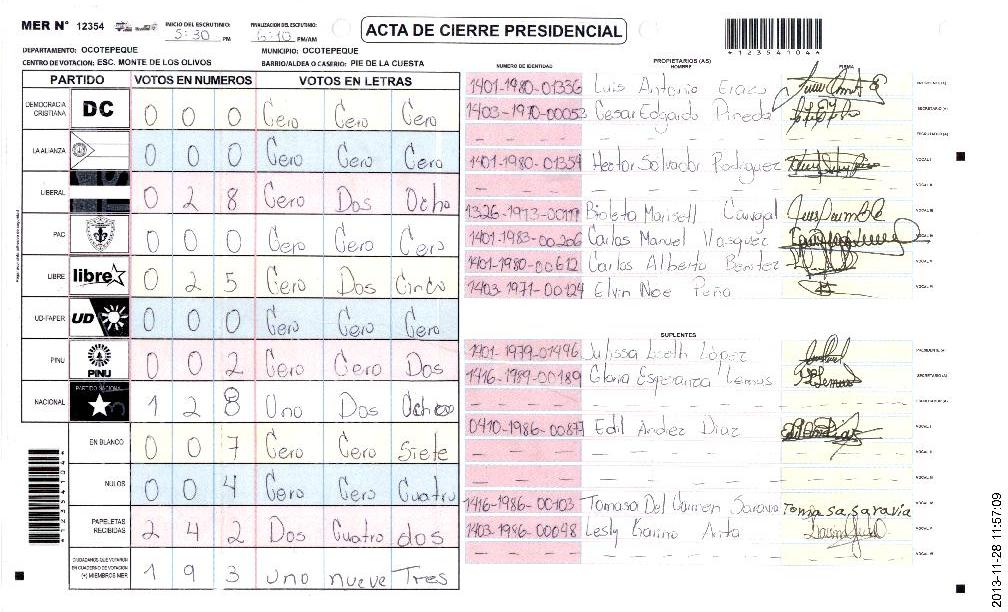 MER N° 12354 INICIO DEL ESCRUTINIO: 5:30 PM FINALIZACION DEL ESCRUTINIO: 6:10 PM/AM
ACTA DE CIERRE PRESIDENCIAL
*1235410 44*
DEPARTAMENTO: OCOTEPEQUE MUNICIPIO: OCOTEPEQUE
CENTRO DE VOTACION: ESC. MONTE DE LOS OLIVOS BARRIO/ALDEA O CASERIO: PIE DE LA CUESTA
PARTIDO VOTOS EN NUMEROS VOTOS EN LETRAS
DEMOCRACIA CRISTIANA DC 0 0 0 Cero Cero Cero
LA ALIANZA 0 0 0 Cero Cero Cero
LIBERAL 0 2 8 Cero Dos Ocho
PAC 0 0 0 Cero Cero Cero
LIBRE libre 0 2 5 Cero Dos Cinco
UD-FAPER UD 0 0 0 Cero Cero Cero
PINU PINU 0 0 2 Cero Cero Dos
NACIONAL PARTIDO NACIONAL 1 2 8 Uno Dos Ocho
EN BLANCO 0 0 7 Cero Cero Siete
NULOS 0 0 4 Cero Cero Cuatro
PAPELETAS RECIBIDAS 2 4 2 Dos Cuatro dos
CIUDADANOS QUE VOTARON EN CUADERNO DE VOTACION (+) MIEMBROS MER 1 9 3 uno nueve Tres
PROPIETARIOS (AS)
NUMERO DE IDENTIDAD NOMBRE FIRMA
1401-1980-01336 Luis Antonio Erazo
1403-1970-00053 Cesar Edgardo Pineda
1401-1980-01354 Hector Salvador Rodriguez
1326-1973-00177 Bioleta Marisell Carvajal
1401-1983-00206 Carlos Manuel Vasquez
1401-1980-00612 Carlos Alberto Benitez
1403-1971-00124 Elvin Noe Peña
SUPLENTES
1401-1979-01496 Julissa Liseth López
1416-1989-00189 Gloria Esperanza Lemus
0410-1986-00877 Edil Andiez Diaz
1416-1986-00103 Tomasa Del Carmen Saravia Tomasa saravia
1403-1986-00048 Lesly Karina Arita
2013-11-28 11:57:09